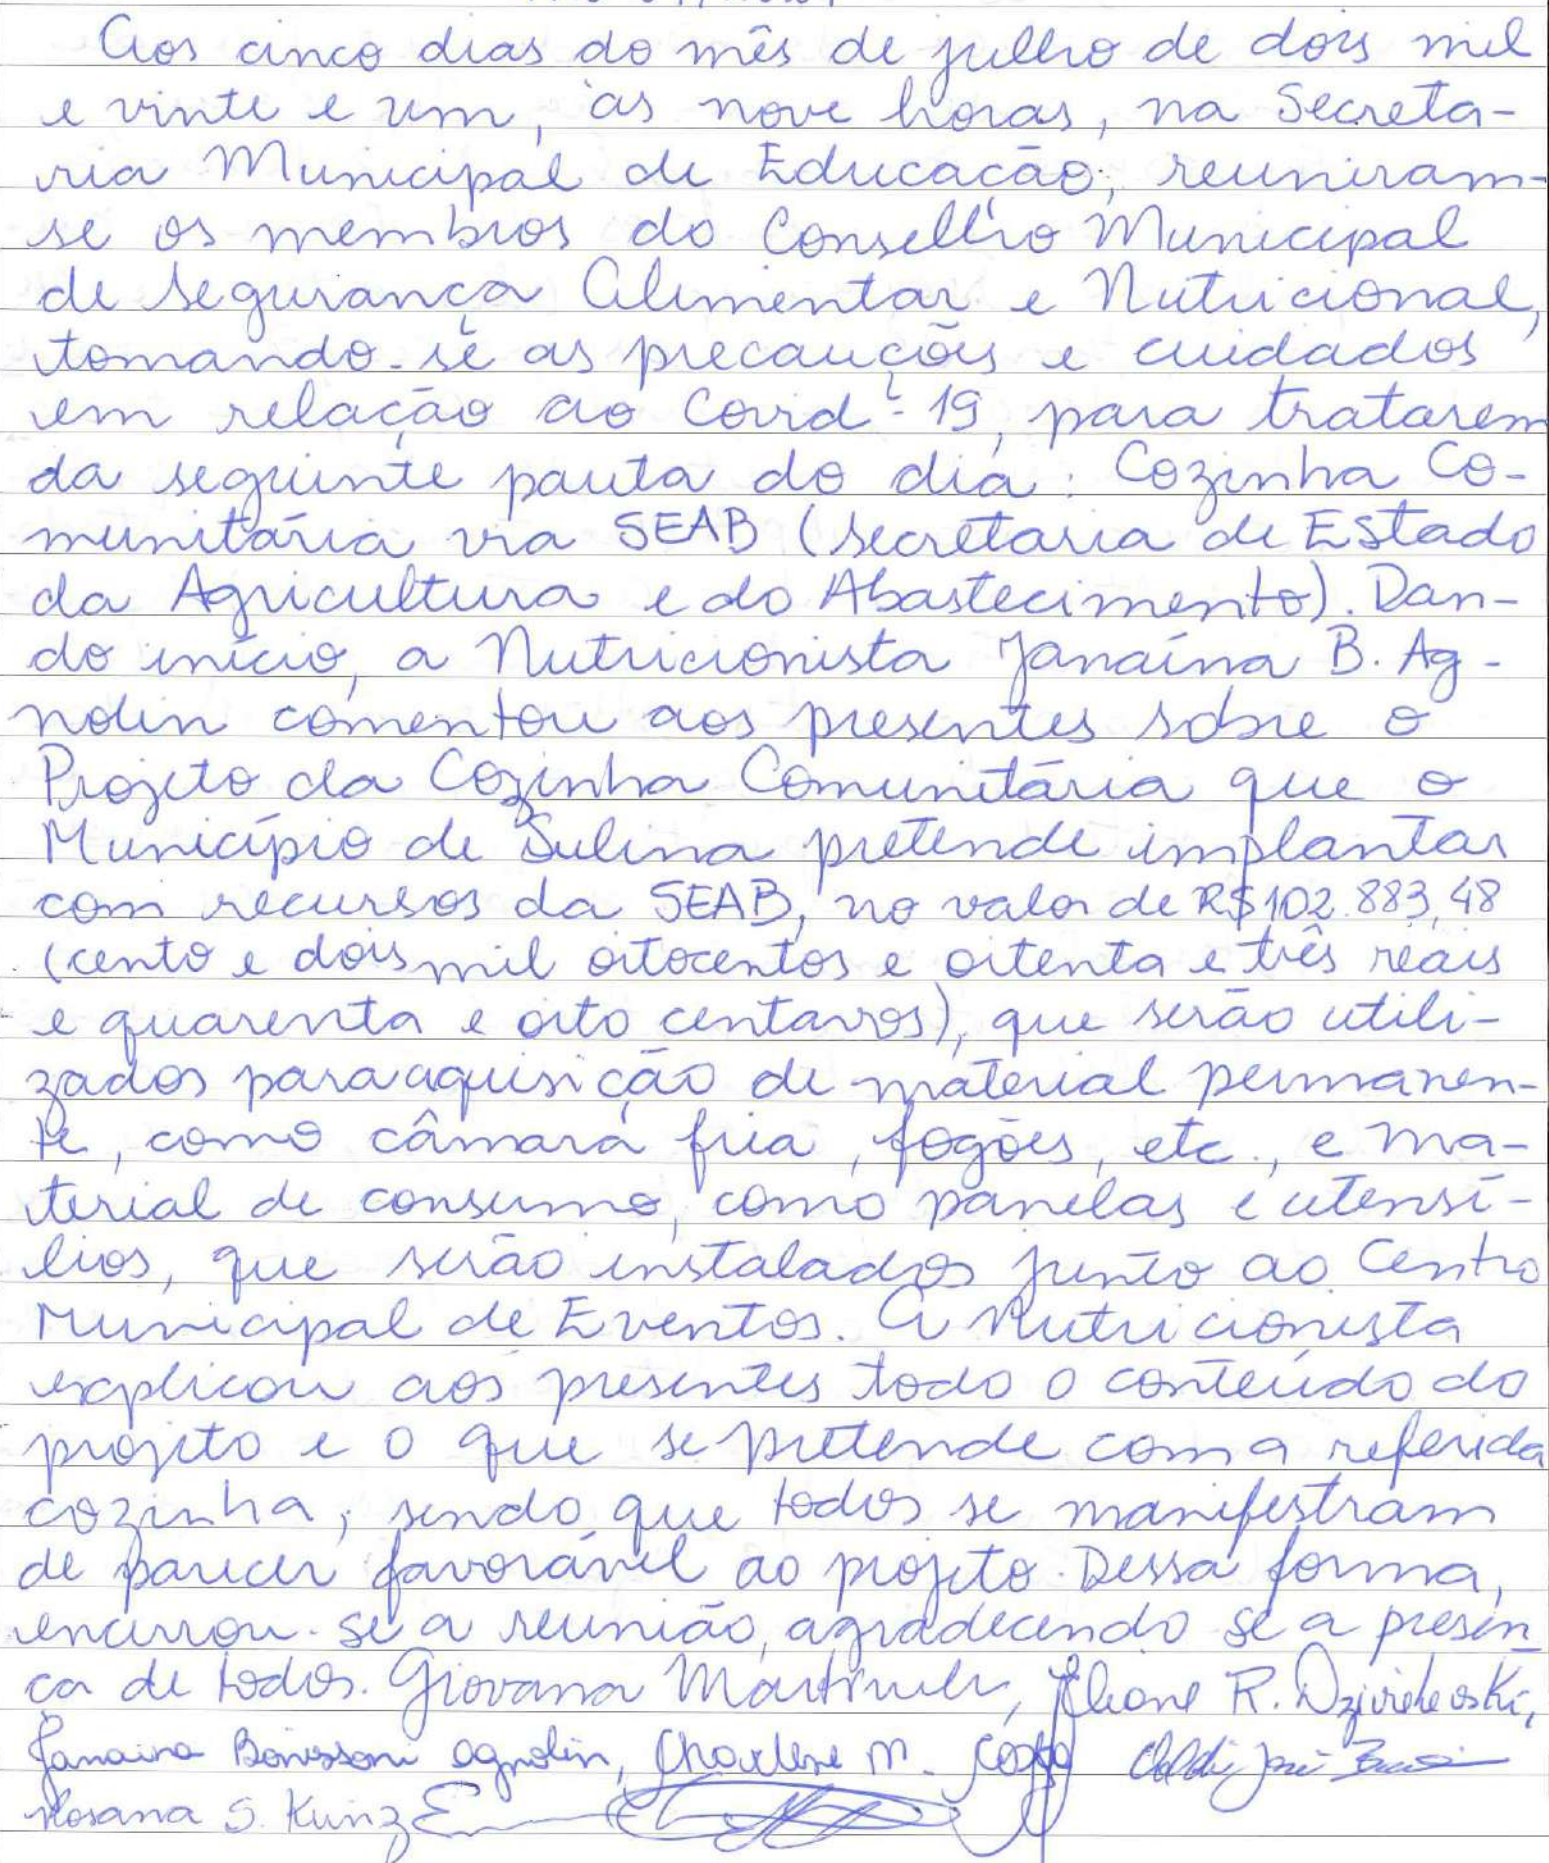 Aos cinco dias do mês de julho de dois mil
e vinte e um, às nove horas, na Secreta-
ria Municipal de Educação, reuniram-
se os membros do Conselho Municipal
de Segurança Alimentar e Nutricional,
tomando-se as precauções e cuidados
em relação ao Covid-19, para tratarem
da seguinte pauta do dia: Cozinha Co-
munitária via SEAB (Secretaria de Estado
da Agricultura e do Abastecimento). Dan-
do início, a Nutricionista Janaína B. Ag-
nolin comentou aos presentes sobre o
Projeto da Cozinha Comunitária que o
Município de Sulina pretende implantar
com recursos da SEAB, no valor de R$102.883,48
(cento e dois mil oitocentos e oitenta e três reais
e quarenta e oito centavos), que serão utili-
zados para aquisição de material permanen-
te, como câmara fria, fogões, etc., e ma-
terial de consumo, como panelas e utensí-
lios, que serão instalados junto ao Centro
Municipal de Eventos. A Nutricionista
explicou aos presentes todo o conteúdo do
projeto e o que se pretende com a referida
cozinha, sendo que todos se manifestram
de parecer favorável ao projeto. Dessa forma,
encerrou-se a reunião, agradecendo se a presen-
ça de todos. Giovana, R.
Janaina Agnolin, Charlene M. Costa José
Rosana S. Kunz